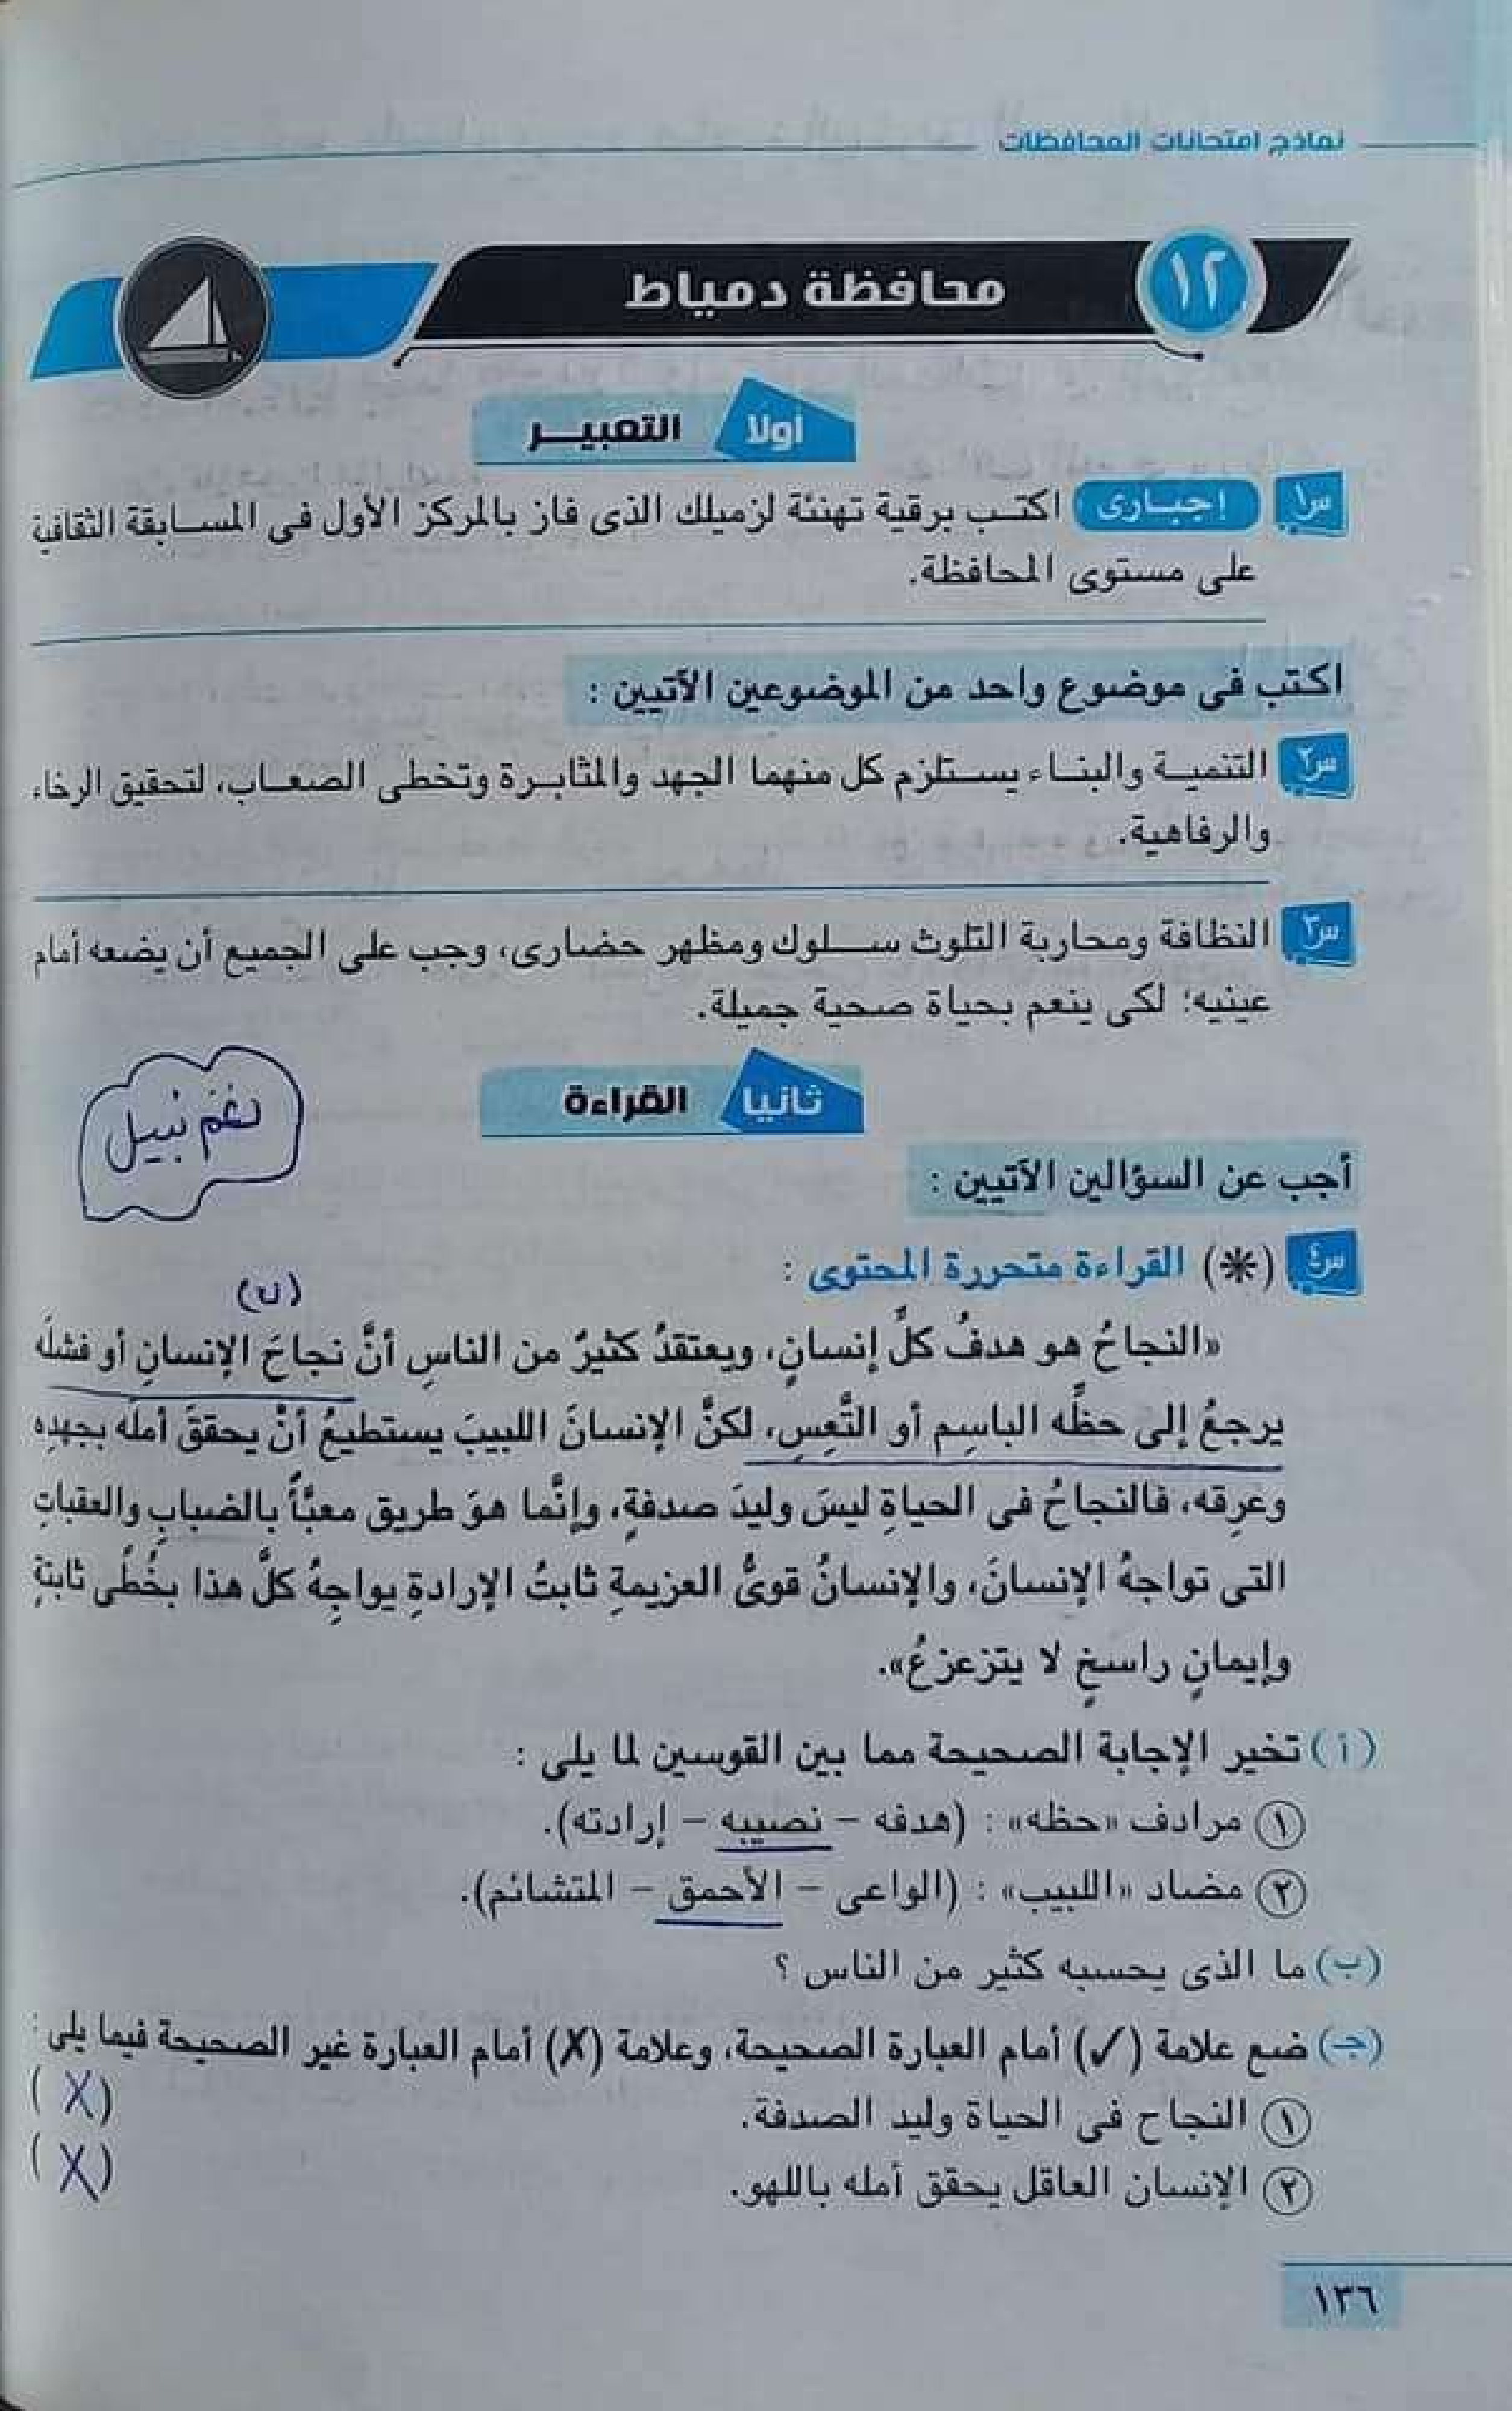 نماذج امتحانات المحافظات
١٢ محافظة دمياط
أولا التعبير
س١ إجبارى اكتب برقية تهنئة لزميلك الذى فاز بالمركز الأول فى المسابقة الثقافية
على مستوى المحافظة.
اكتب فى موضوع واحد من الموضوعين الآتيين :
س٢ التنمية والبناء يستلزم كل منهما الجهد والمثابرة وتخطى الصعاب، لتحقيق الرخاء
والرفاهية.
س٣ النظافة ومحاربة التلوث سلوك ومظهر حضارى، وجب على الجميع أن يضعه أمام
عينيه؛ لكى ينعم بحياة صحية جميلة.
ثانيا القراءة
نغم نبيل
أجب عن السؤالين الآتيين :
س٤ (*) القراءة متحررة المحتوى :
(ب)
«النجاحُ هو هدفُ كلِّ إنسانٍ، ويعتقدُ كثيرٌ من الناسِ أنَّ نجاحَ الإنسانِ أو فشلَه
يرجعُ إلى حظِّه الباسِمِ أو التَّعِسِ، لكنَّ الإنسانَ اللبيبَ يستطيعُ أنْ يحققَ أملَه بجهدِه
وعرقِه، فالنجاحُ فى الحياةِ ليسَ وليدَ صدفةٍ، وإنَّما هوَ طريق معبَّأ بالضبابِ والعقباتِ
التى تواجهُ الإنسانَ، والإنسانُ قوىُّ العزيمةِ ثابتُ الإرادةِ يواجِهُ كلَّ هذا بخُطًى ثابتةٍ
وإيمانٍ راسخٍ لا يتزعزعُ».
(أ) تخير الإجابة الصحيحة مما بين القوسين لما يلى :
١ مرادف «حظه» : (هدفه – نصيبه – إرادته).
٢ مضاد «اللبيب» : (الواعى – الأحمق – المتشائم).
(ب) ما الذى يحسبه كثير من الناس ؟
(جـ) ضع علامة (✓) أمام العبارة الصحيحة، وعلامة (✗) أمام العبارة غير الصحيحة فيما يلى :
١ النجاح فى الحياة وليد الصدفة. (X)
٢ الإنسان العاقل يحقق أمله باللهو. (X)
١٣٦